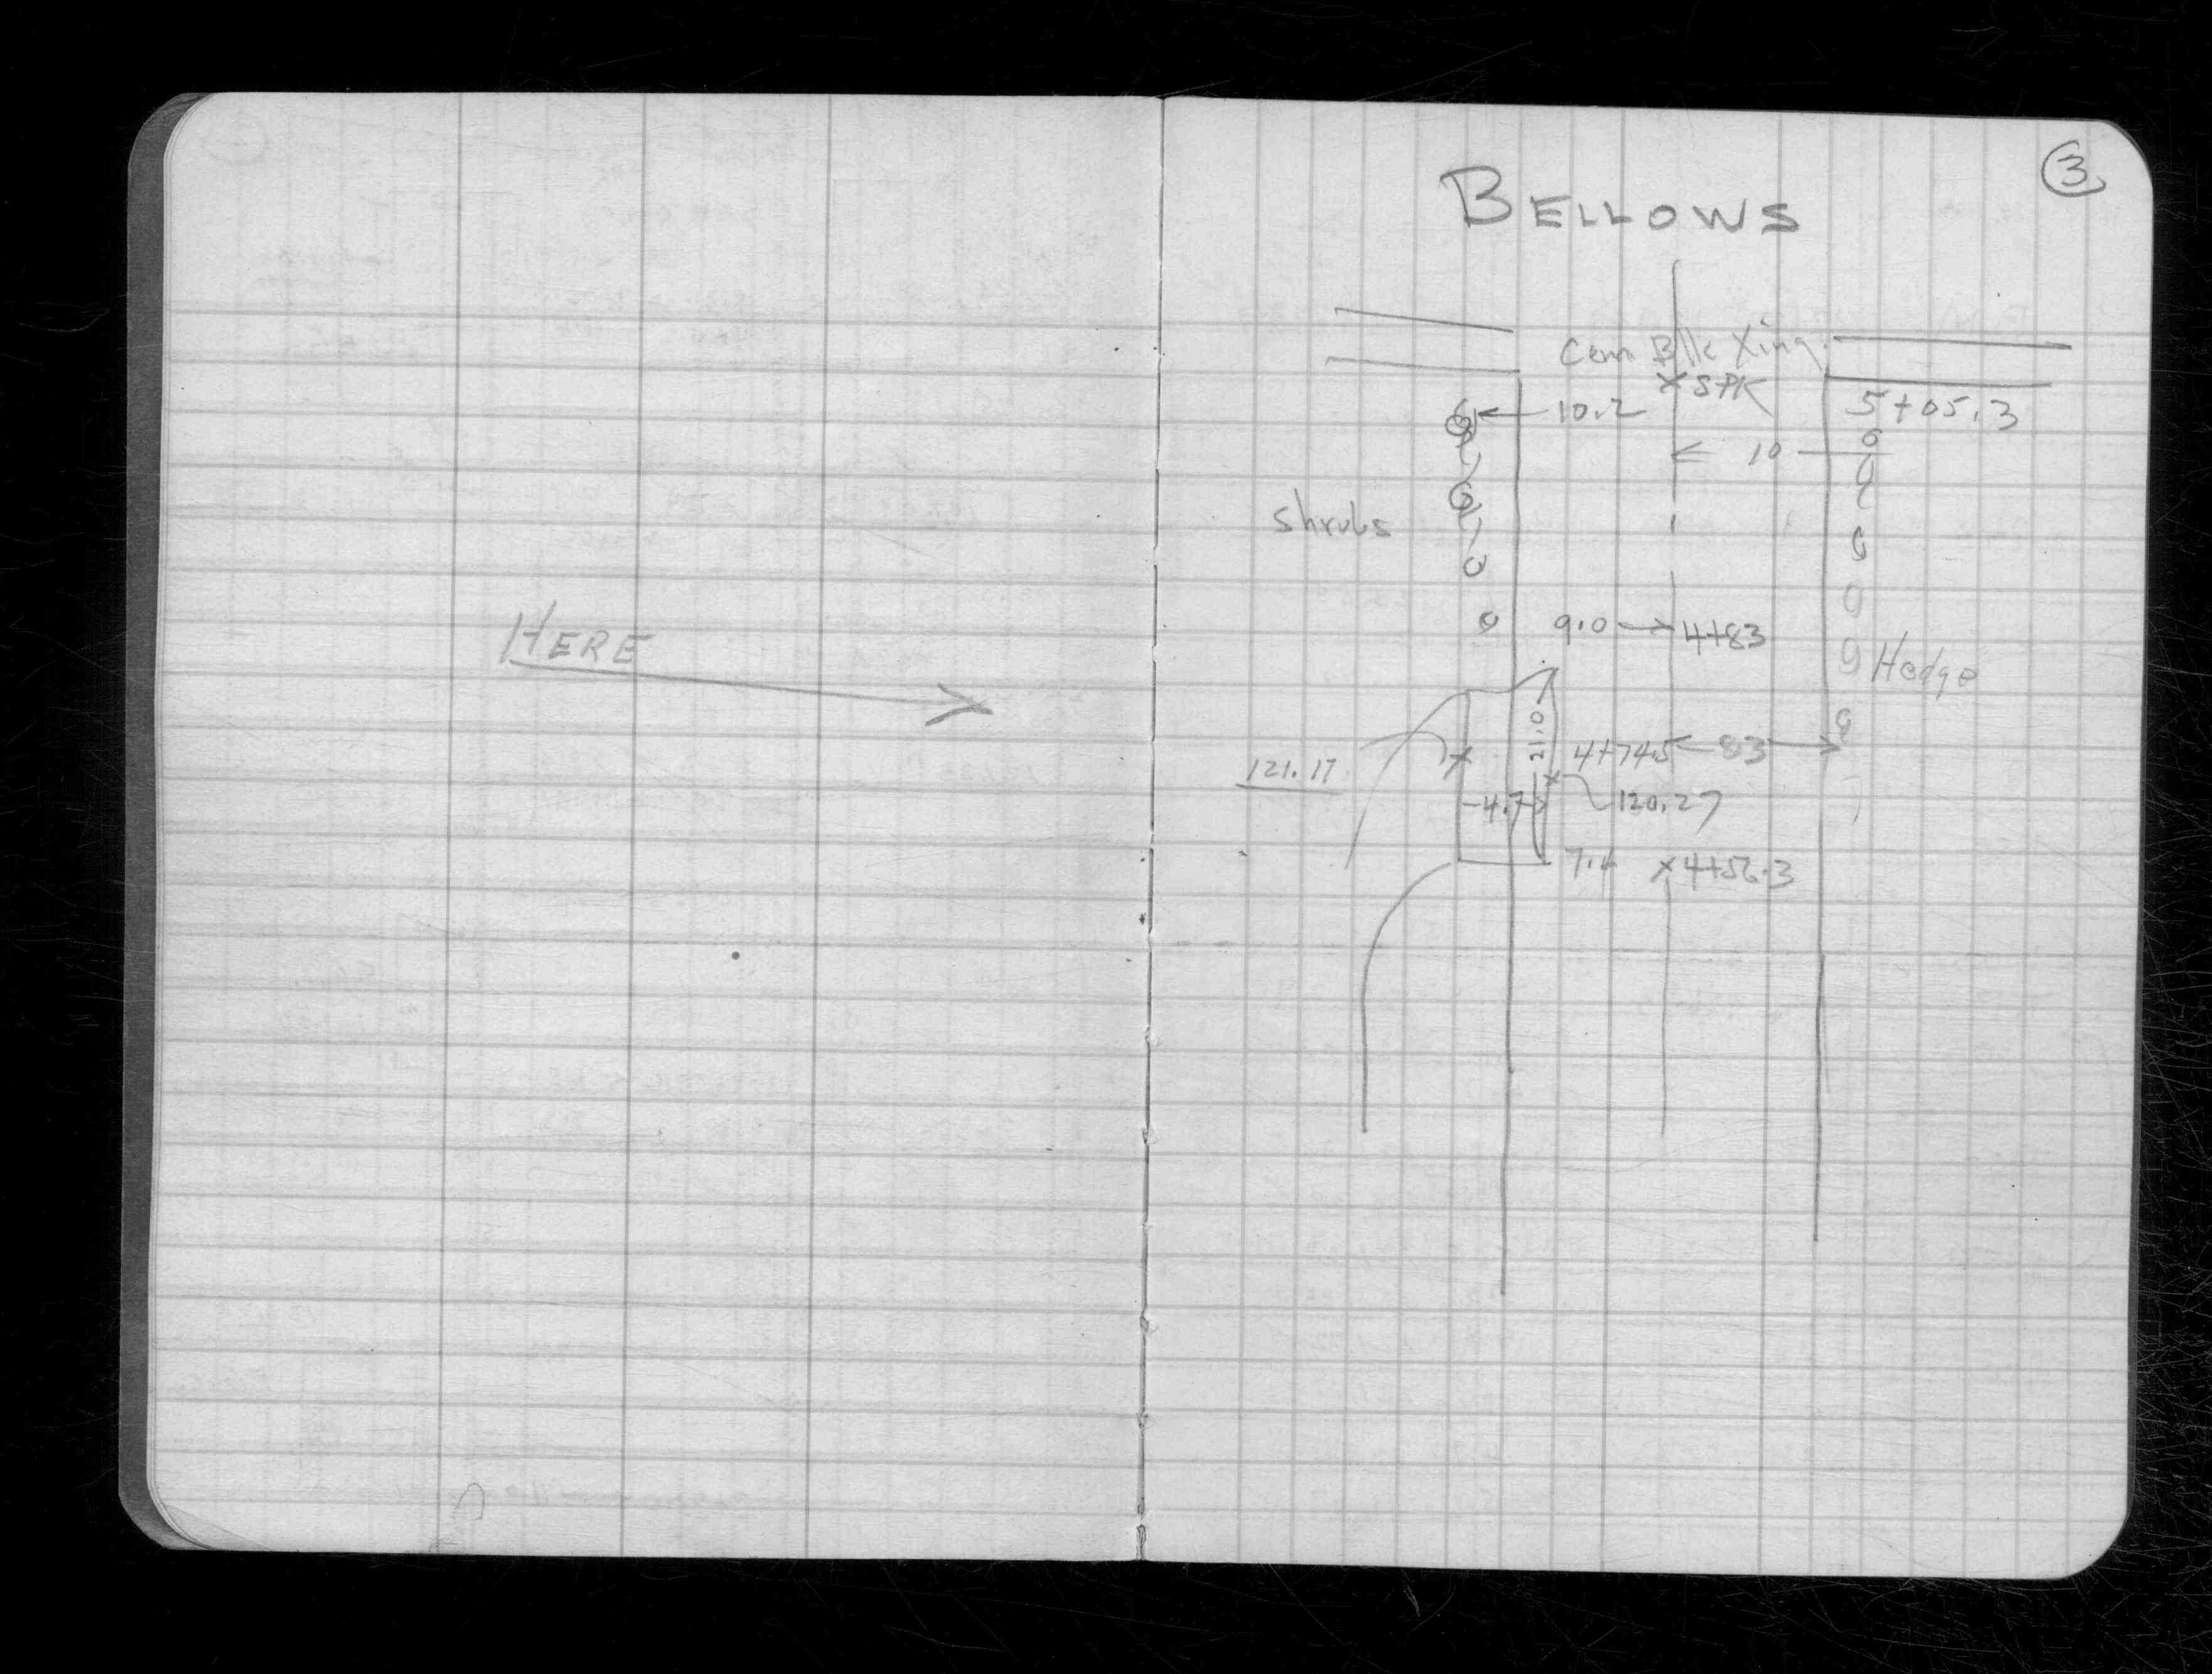 HERE
③
BELLOWS
Cem Blk Xing.
×SPK
10.2
5+05.3
10
shrubs
9.0 → 4+83
Hedge
21.0
4+74.5 ← 83 →
121.17
4.7
120.27
×4+56.3